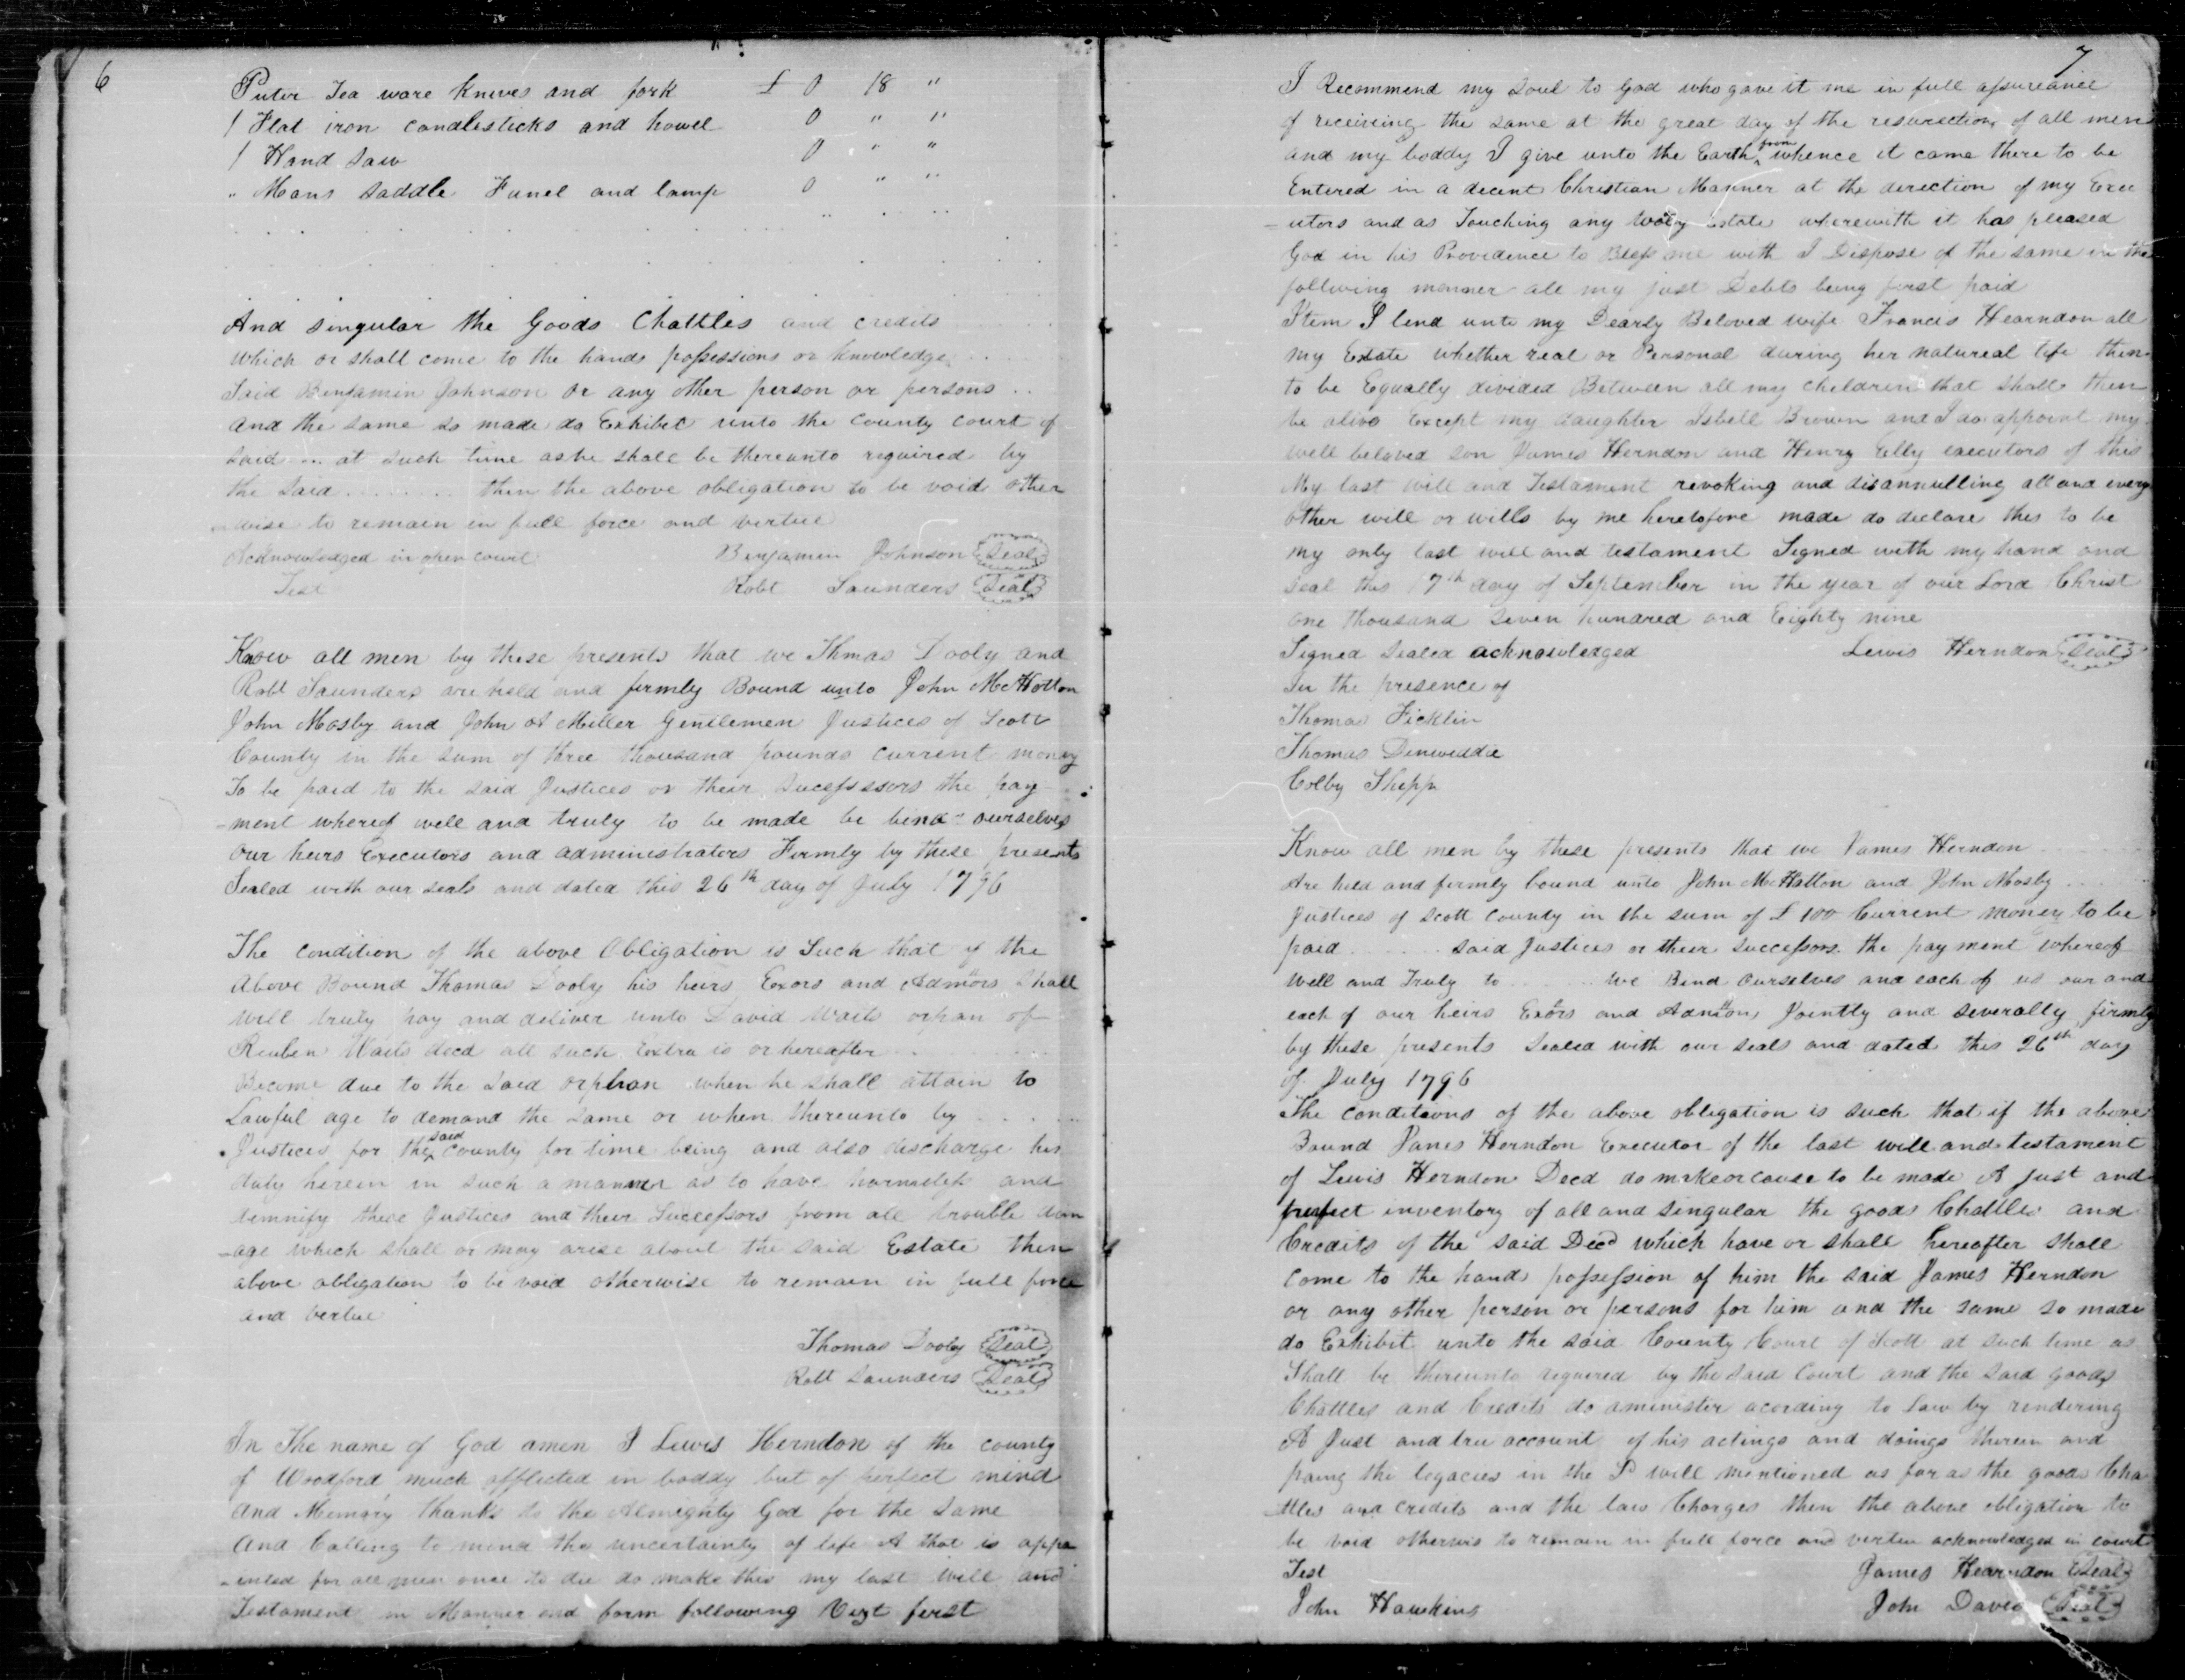 6
Puter Tea ware Knives and fork £ 0 18 "
1 Flat iron candlesticks and howel 0 " "
1 Hand Saw 0 " "
" Mans Saddle Funel and lamp 0 " "
And singular the Goods Chattles and credits
which or shall come to the hands possessions or knowledge
Said Benjamin Johnson or any other person or persons ..
and the same so made do Exhibit unto the County Court of
said ... at such time as he shall be thereunto required by
the said ........ then the above obligation to be void other
-wise to remain in full force and virtue
Acknowledged in open court Benjamin Johnson Seal
Test Robt Saunders Seal
Know all men by these presents that we Thmas Dooly and
Robt Saunders are held and firmly Bound unto John McHotton
John Mosby and John A Miller Gentlemen Justices of Scott
County in the sum of three thousand pounds current money
To be paid to the said Justices or their Sucessssors the pay
-ment whereof well and truly to be made be bind ourselves
our heirs Executors and administrators Firmly by these presents
Sealed with our seals and dated this 26th day of July 1796
The condition of the above Obligation is Such that if the
Above Bound Thomas Dooly his heirs Exors and Admors Shall
will truly pay and deliver unto David Waits orpan of
Reuben Waits decd all such Extra is or hereafter ..
Become due to the said orphan when he shall attain to
Lawful age to demand the same or when thereunto by ......
Justices for the said County for time being and also discharge his
duty herein in such a manner as to have harmeless and
demnify these Justices and their Successors from all trouble dam
-age which shall or may arise about the said Estate then
above obligation to be void otherwise to remain in full force
and vertue
Thomas Dooly Seal
Robt Saunders Seal
In The name of God amen I Lewis Herndon of the county
of Woodford much afflicted in boddy but of perfect mind
and Memory thanks to the Almighty God for the Same
And Calling to mind the uncertainty of life & that is appo
-inted for all men once to die do make this my last will and
Testament in Manner and form following Vizt first
7
I Recommend my Soul to God who gave it me in full assureance
of receiving the same at the great day of the resurection of all men
and my boddy I give unto the Earth from whence it came there to be
Entered in a decent Christian Manner at the direction of my Exec
-utors and as Touching any estate wherewith it has pleased
God in his Providence to Bless me with I Dispose of the same in the
follwing manner all my just Debts being first paid
Item I lend unto my Dearly Beloved wife Francis Hearndon all
my Estate whether real or Personal during her natureal life then
to be Equally divided Between all my children that shall then
be alive Except my daughter Isbell Brown and I do appoint my
well beloved son James Herndon and Henry Elly executors of this
My last will and Testament revoking and disannulling all and every
other will or wills by me heretofore made do declare this to be
my only last will and testament Signed with my hand and
seal this 17th day of September in the year of our Lord Christ
one thousand seven hundred and Eighty nine
Signed Sealed acknowledged Lewis Herndon Seal
In the presence of
Thomas Ficklin
Thomas Dinwiddie
Colby Shipp
Know all men by these presents that we James Herndon
Are held and firmly bound unto John McHatton and John Mosby ....
Justices of Scott County in the sum of £ 100 Current money to be
paid ...... said Justices or their successors the payment whereof
Well and Truly to ...... we Bind Ourselves and each of us our and
each of our heirs Exors and Admors Jointly and severally firmly
by these presents Sealed with our seals and dated this 26th day
of July 1796
The conditions of the above obligation is such that if the above
Bound James Herndon Executor of the last will and testament
of Lewis Herndon Decd do make or cause to be made A just and
prefect inventory of all and singular the goods Chattles and
Credits of the said Decd which have or shall hereafter shall
come to the hands possession of him the said James Herndon
or any other person or persons for him and the same so made
do Exhibit unto the said County Court of Scott at such time as
Shall be thereunto required by the said Court and the said goods
Chattles and Credits do aminister acording to Law by rendering
A Just and tru account of his actings and doings therein and
paing the legacies in the Sd will mentioned as far as the goods Cha
-ttles and credits and the law Charges then the above obligation to
be void otherwis to remain in full force and vertue acknowledged in court
Test James Hearndon Seal
John Hawkins John Davis Seal